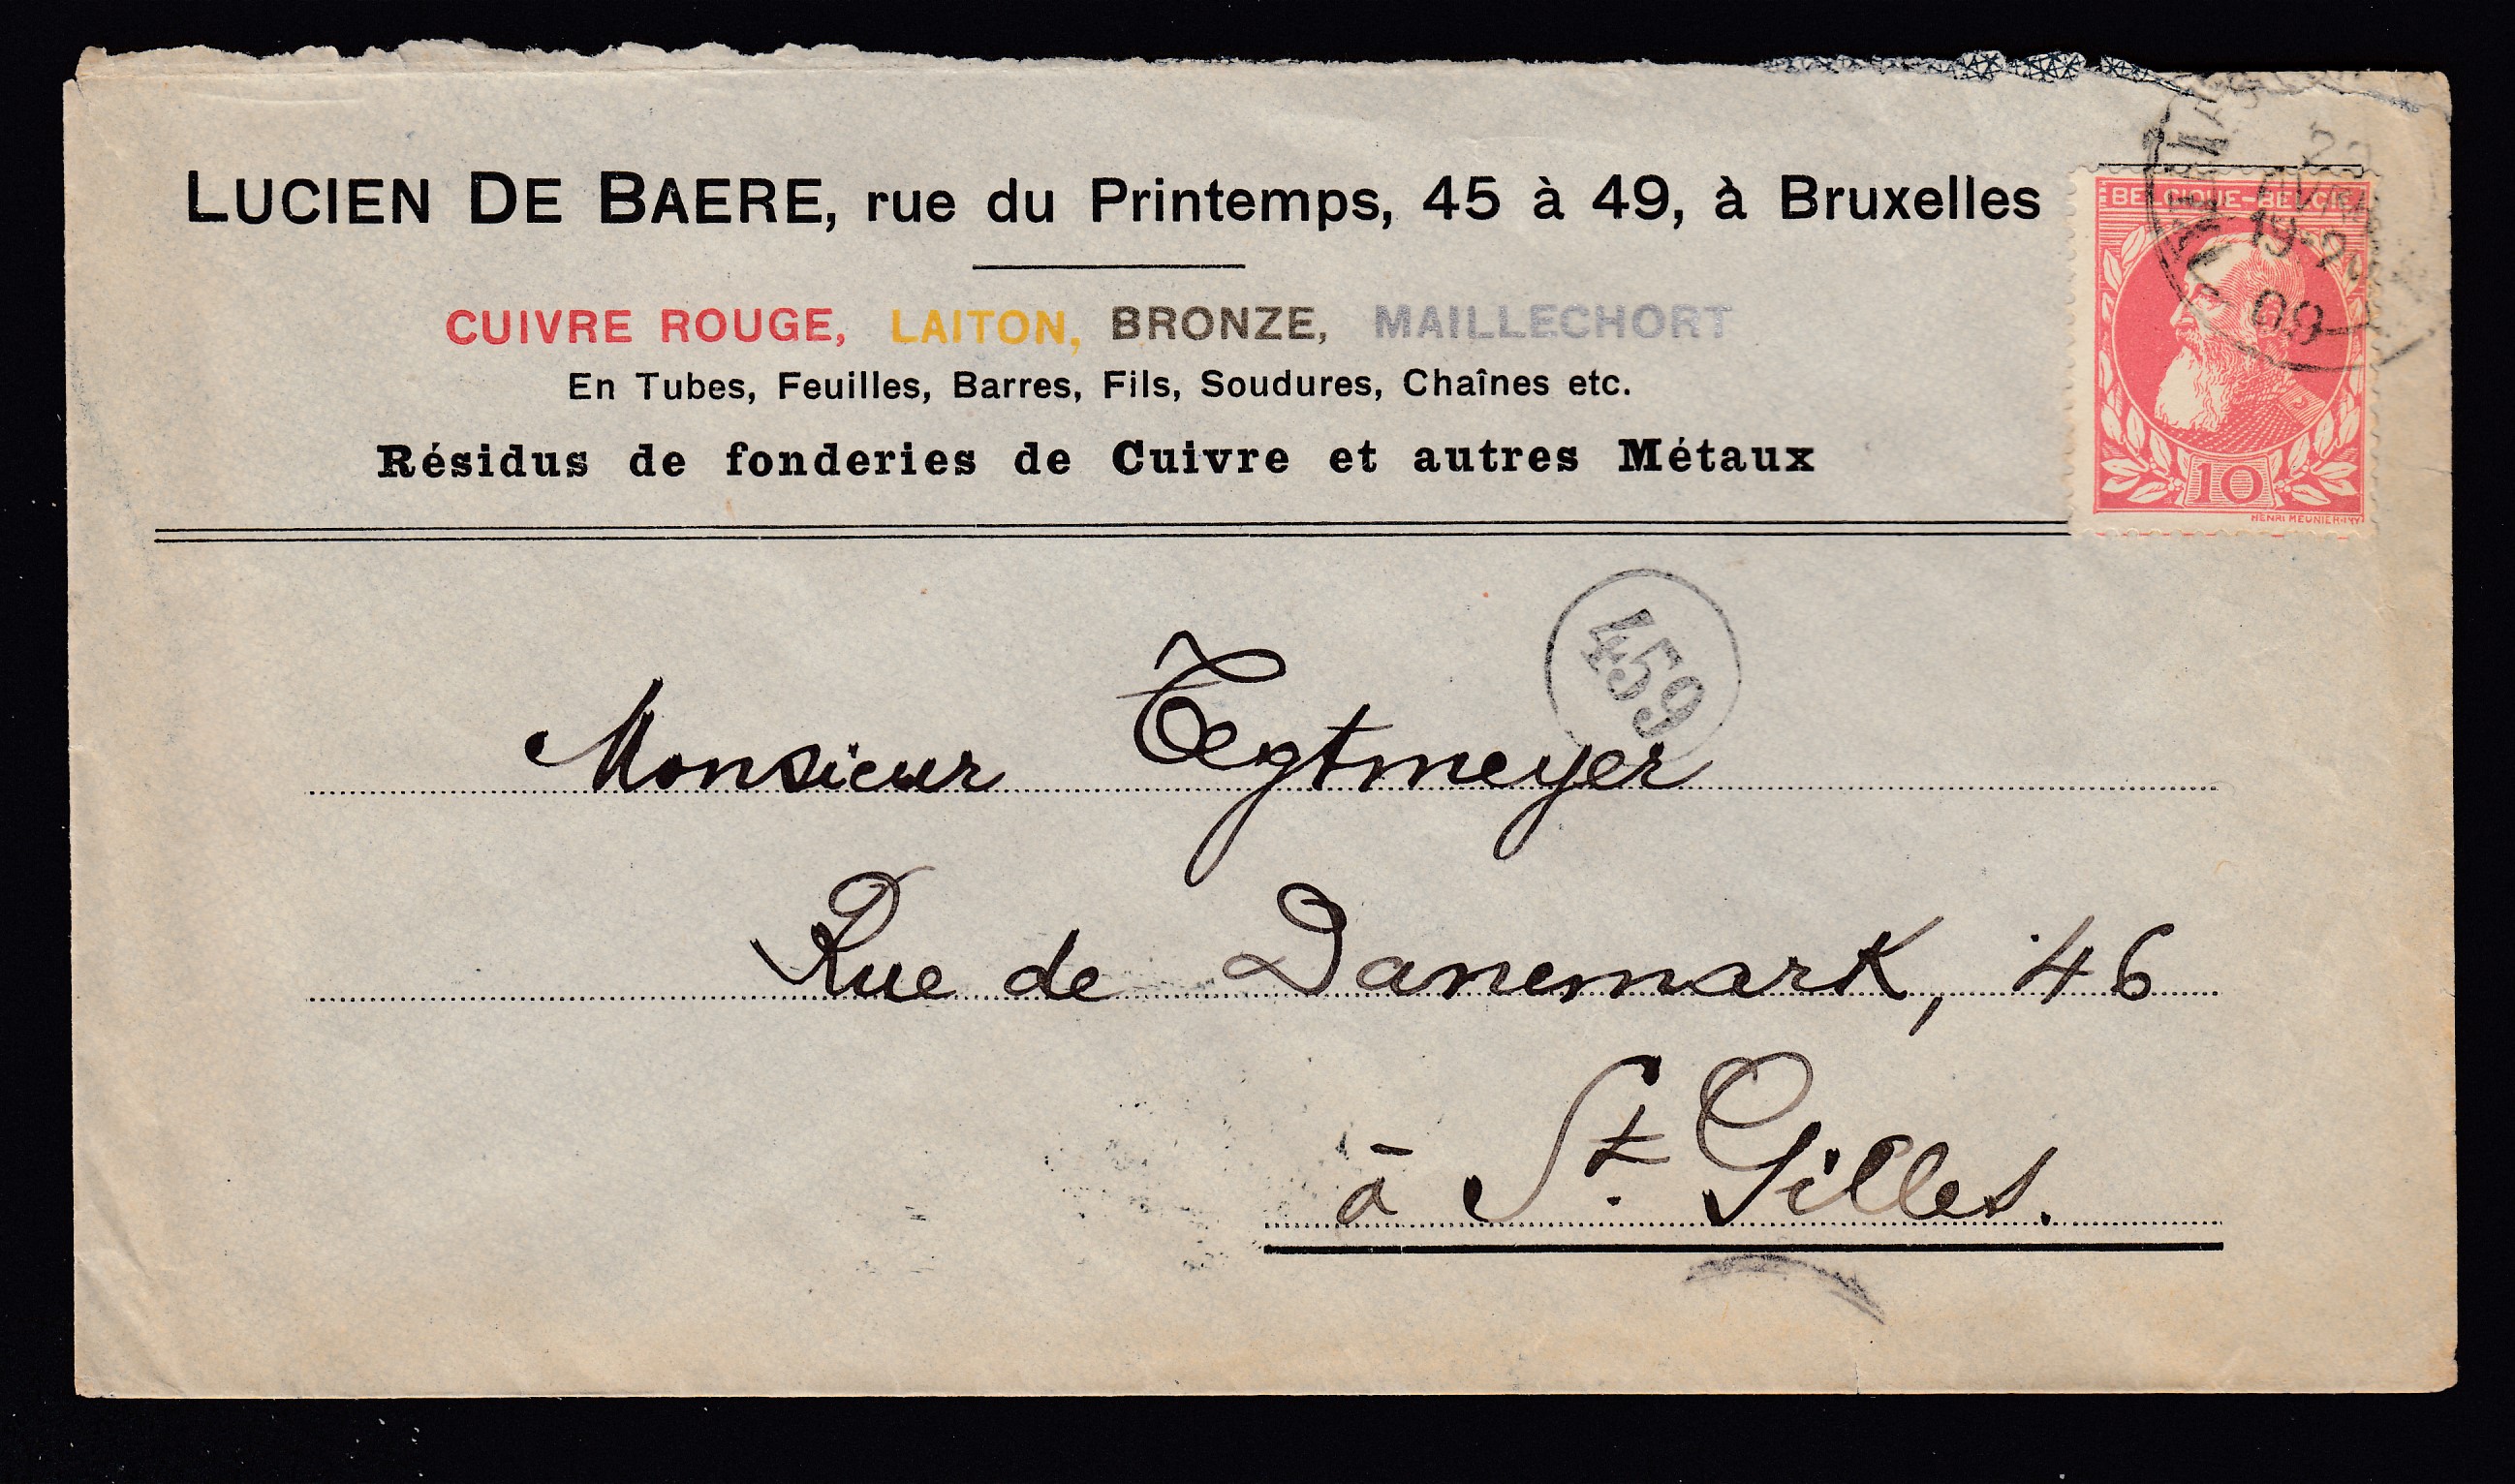 LUCIEN DE BAERE, rue du Printemps, 45 à 49, à Bruxelles
CUIVRE ROUGE, LAITON, BRONZE, MAILLECHORT
En Tubes, Feuilles, Barres, Fils, Soudures, Chaînes etc.
Résidus de fonderies de Cuivre et autres Métaux
BELGIQUE-BELGIE
19-20
09
10
HENRI MEUNIER
459
Monsieur Tegtmeyer
Rue de Danemark, 46
à St. Gilles.